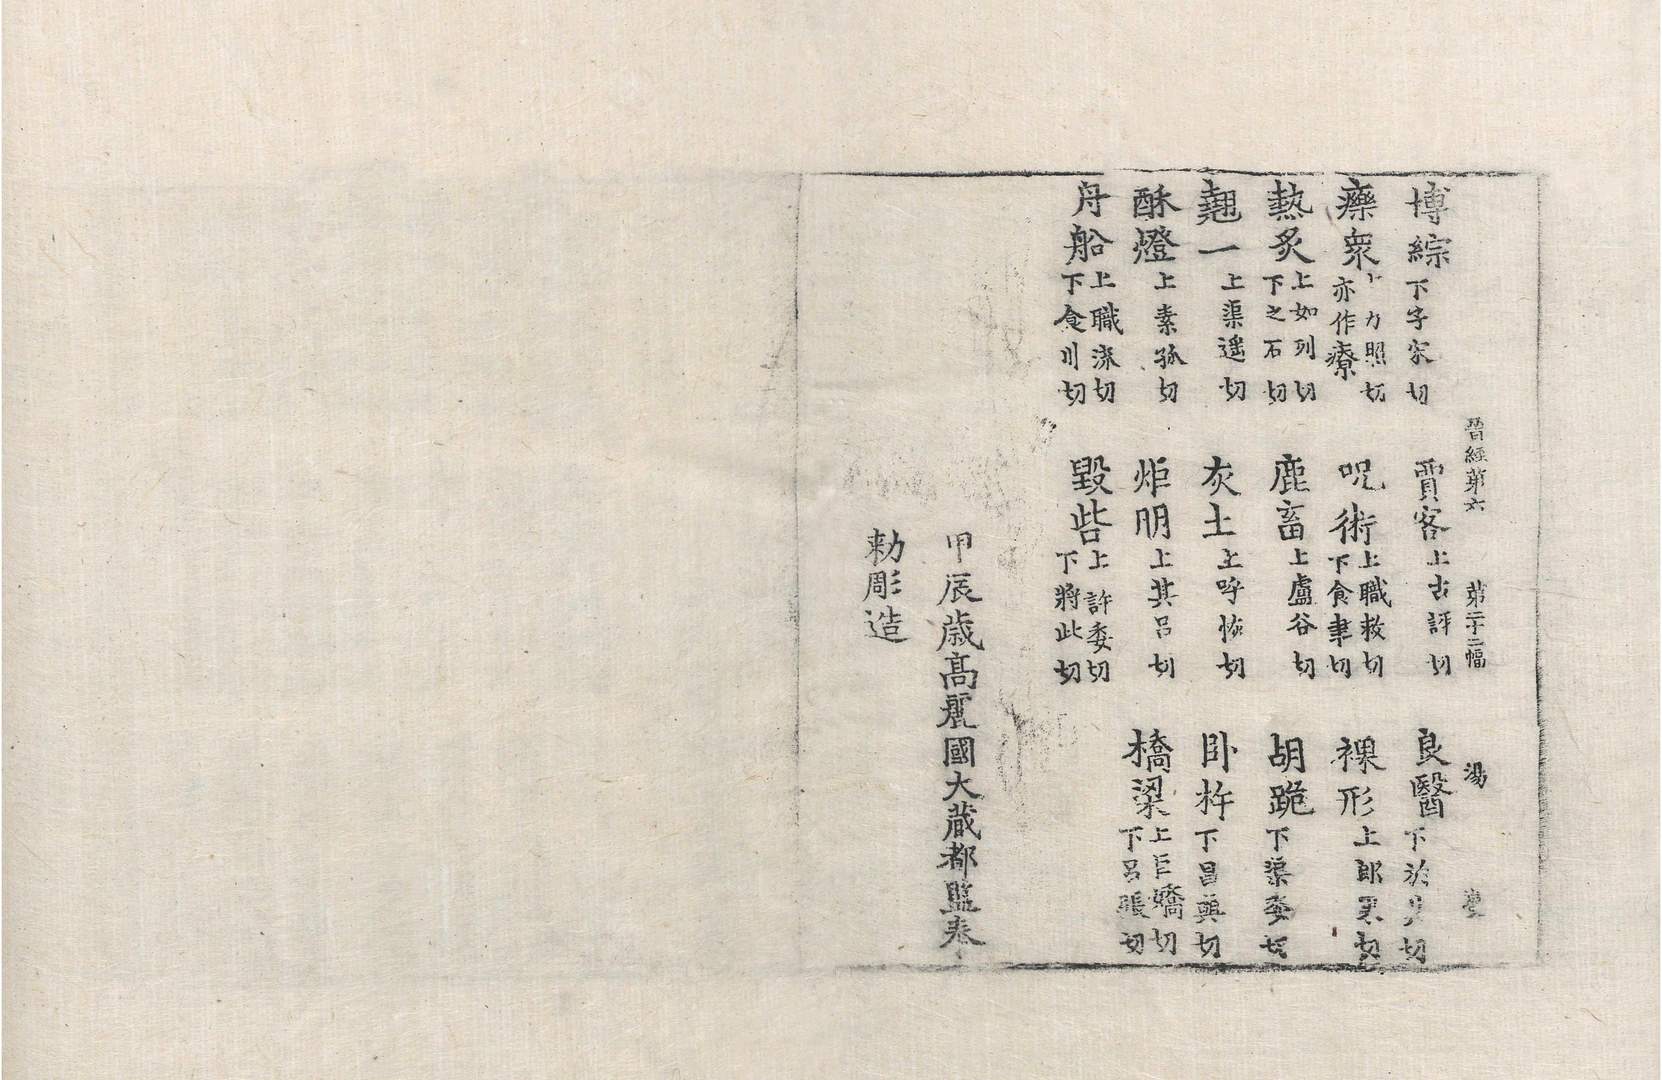 晉經第六 第二十二幅 湯
博綜下子宋切 賈客上古評切 良醫下於其切
𤻲衆上力照切亦作療 呪術上職救切下食聿切 裸形上郎果切
熱炙上如列切下之石切 鹿畜上盧谷切 胡跪下渠委切
翹一上渠遥切 灰土上呼恢切 卧杵下昌與切
酥燈上素孫切 炬明上其呂切 橋梁上巨嬌切下呂張切
舟船上職流切下食川切 毀呰上許委切下將此切
甲辰歲高麗國大藏都監奉
勅彫造